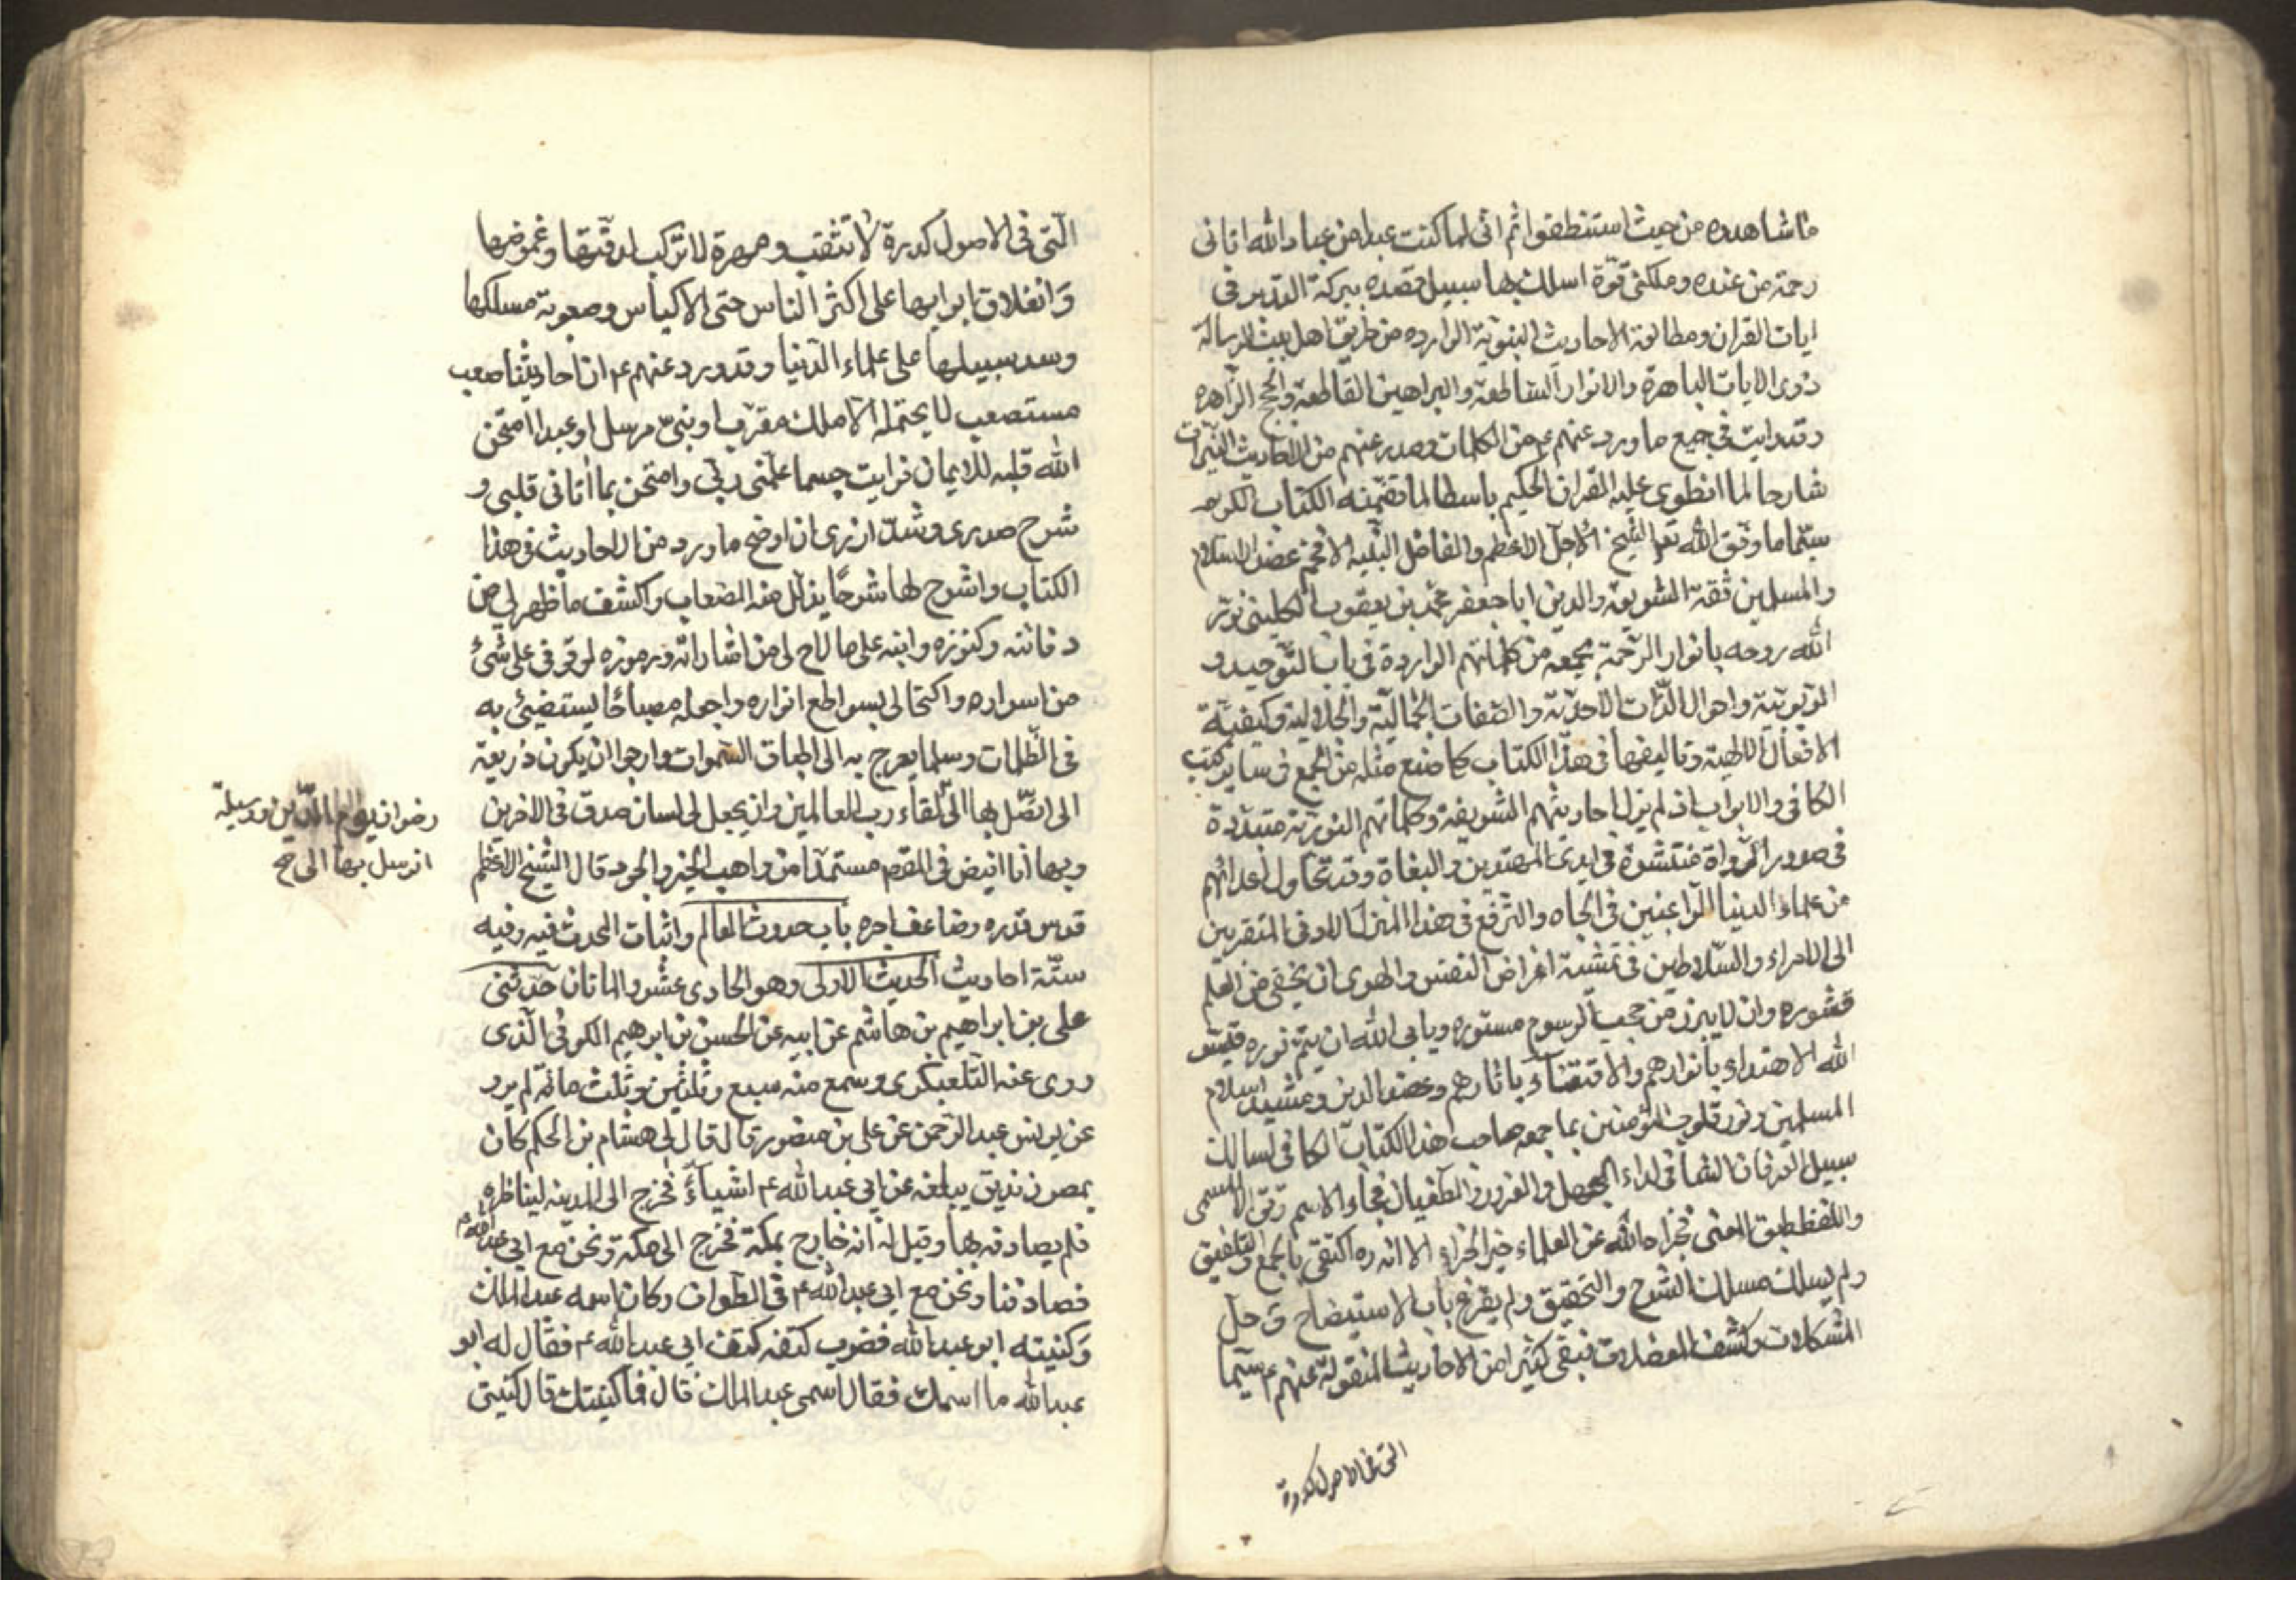 ما شاهدوه من حيث استنطقوا ثم انى لما كنت عبدا من عباد الله اتانى
رحمة من عنده وملكنى قوة اسلك بها سبيل قصده ببركة التدبر فى
ايات القران ومطالعة الاحاديث النبوية الوارده من طريق اهل بيت الرسالة
ذوى الايات الباهرة والانوار الساطعة والبراهين القاطعة والحجج الزاهره
وقد رايت فى جميع ما ورد عنهم ع من الكلمات وصدر عنهم من الاحاديث النيرات
شارحا لما انطوى عليه القران الحكيم باسطا لما تضمنه الكتاب الكريم
سيما ما وفق الله تعالى الشيخ الاجل الاعظم والفاضل النبيه الافخم عضد الاسلام
والمسلمين ثقة الشريعة والدين ابا جعفر محمد بن يعقوب الكلينى نور
الله روحه بانوار الرحمة بجمعه من كلماتهم الواردة فى باب التوحيد و
الربوبية واحوال الذات الاحدية والصفات الجمالية والجلالية وكيفية
الافعال الالهية وتاليفها فى هذا الكتاب كما صنع مثله من الجمع فى ساير كتب
الكافى والابواب اذ لم يزل احاديثهم الشريفة وكلماتهم النورية متبددة
فى صدور الرواة منتشرة فى ايدى المهتدين والبغاة وقد تحاول اعدائهم
من علماء الدنيا الراغبين فى الجاه والترفع فى هذا المنزل الادنى المتقربين
الى الامراء والسلاطين فى تمشية اغراض النفس والهوى ان يخفى من العلم
قشوره وان لا يبرز من حجب الرسوم مستوره ويابى الله ان يتم نوره فيسر
الله الاهتداء بانوارهم والاقتفاء باثارهم وعضد الدين ومشيد اسلام
المسلمين ونور قلوب المؤمنين بما جمعه صاحب هذا الكتاب الكافى لسالك
سبيل العرفان الشافى لداء الجهل والغرور والطغيان فجاء الاسم وفق المسمى
واللفظ طبق المعنى فجزاه الله عن العلماء خير الجزاء الا انه ره اكتفى بالجمع والتلفيق
ولم يسلك مسلك الشرح والتحقيق ولم يقرع باب الاستيضاح فى حل
المشكلات وكشف المعضلات فبقى كثيرا من الاحاديث المنقولة عنهم ع سيما
التى فى الاصول كدرة
التى فى الاصول كدرة لا تثقب ومهرة لا تركب لدقتها وغموضها
وانغلاق ابوابها على اكثر الناس حتى الاكياس وصعوبة مسلكها
وسد سبيلها على علماء الدنيا وقد ورد عنهم ع ان احاديثنا صعب
مستصعب لا يحتمله الا ملك مقرب او نبى مرسل او عبد امتحن
الله قلبه للايمان فرايت حسما علمنى ربى وامتحن بما اتانى قلبى و
شرح صدرى وشد ازرى ان اوضح ما ورد من الاحاديث فى هذا
الكتاب واشرح لها شرحا يذلل منه الصعاب واكشف ما ظهر لى من
دفائنه وكنوزه وابنه على ما لاح لى من اشاراته ورموزه لوقوفى على شئ
من اسراره واكتحالى بسواطع انواره واجعله مصباحا يستضيئ به
فى الظلمات وسلما يعرج به الى اطباق السموات وارجو ان يكون ذريعة
الى اتصل بها الى لقاء رب العالمين وان يجعل لى لسان صدق فى الاخرين
رضوان يوم الدين ووسيلة
اتوسل بها الى صح
وبها انا افيض فى المقصد مستمدا من واهب الخير والجود قال الشيخ الاعظم
قدس قدره وضاعف اجره باب حدوث العالم واثبات المحدث فيه وفيه
ستة احاديث الحديث الاولى وهو الحادى عشر والماتان حدثنى
على بن ابراهيم بن هاشم عن ابيه عن الحسن بن ابرهيم الكوفى الذى
روى عنه التلعبكرى وسمع منه سبع وثلثين وثلث مائة لم يرو
عن يونس عبد الرحمن عن على بن منصور قال قال لى هشام بن الحكم كان
بمصر زنديق يبلغه عن ابى عبد الله ع اشياء فخرج الى المدينه ليناظره
فلم يصادفه بها وقيل له انه خارج بمكة فخرج الى مكة ونحن مع ابى عبد الله ع
فصادفنا ونحن مع ابى عبد الله ع فى الطواف وكان اسمه عبد الملك
وكنيته ابو عبد الله فضرب كتفه كتف ابى عبد الله ع فقال له ابو
عبد الله ما اسمك فقال اسمى عبد الملك قال فما كنيتك قال كنيتى